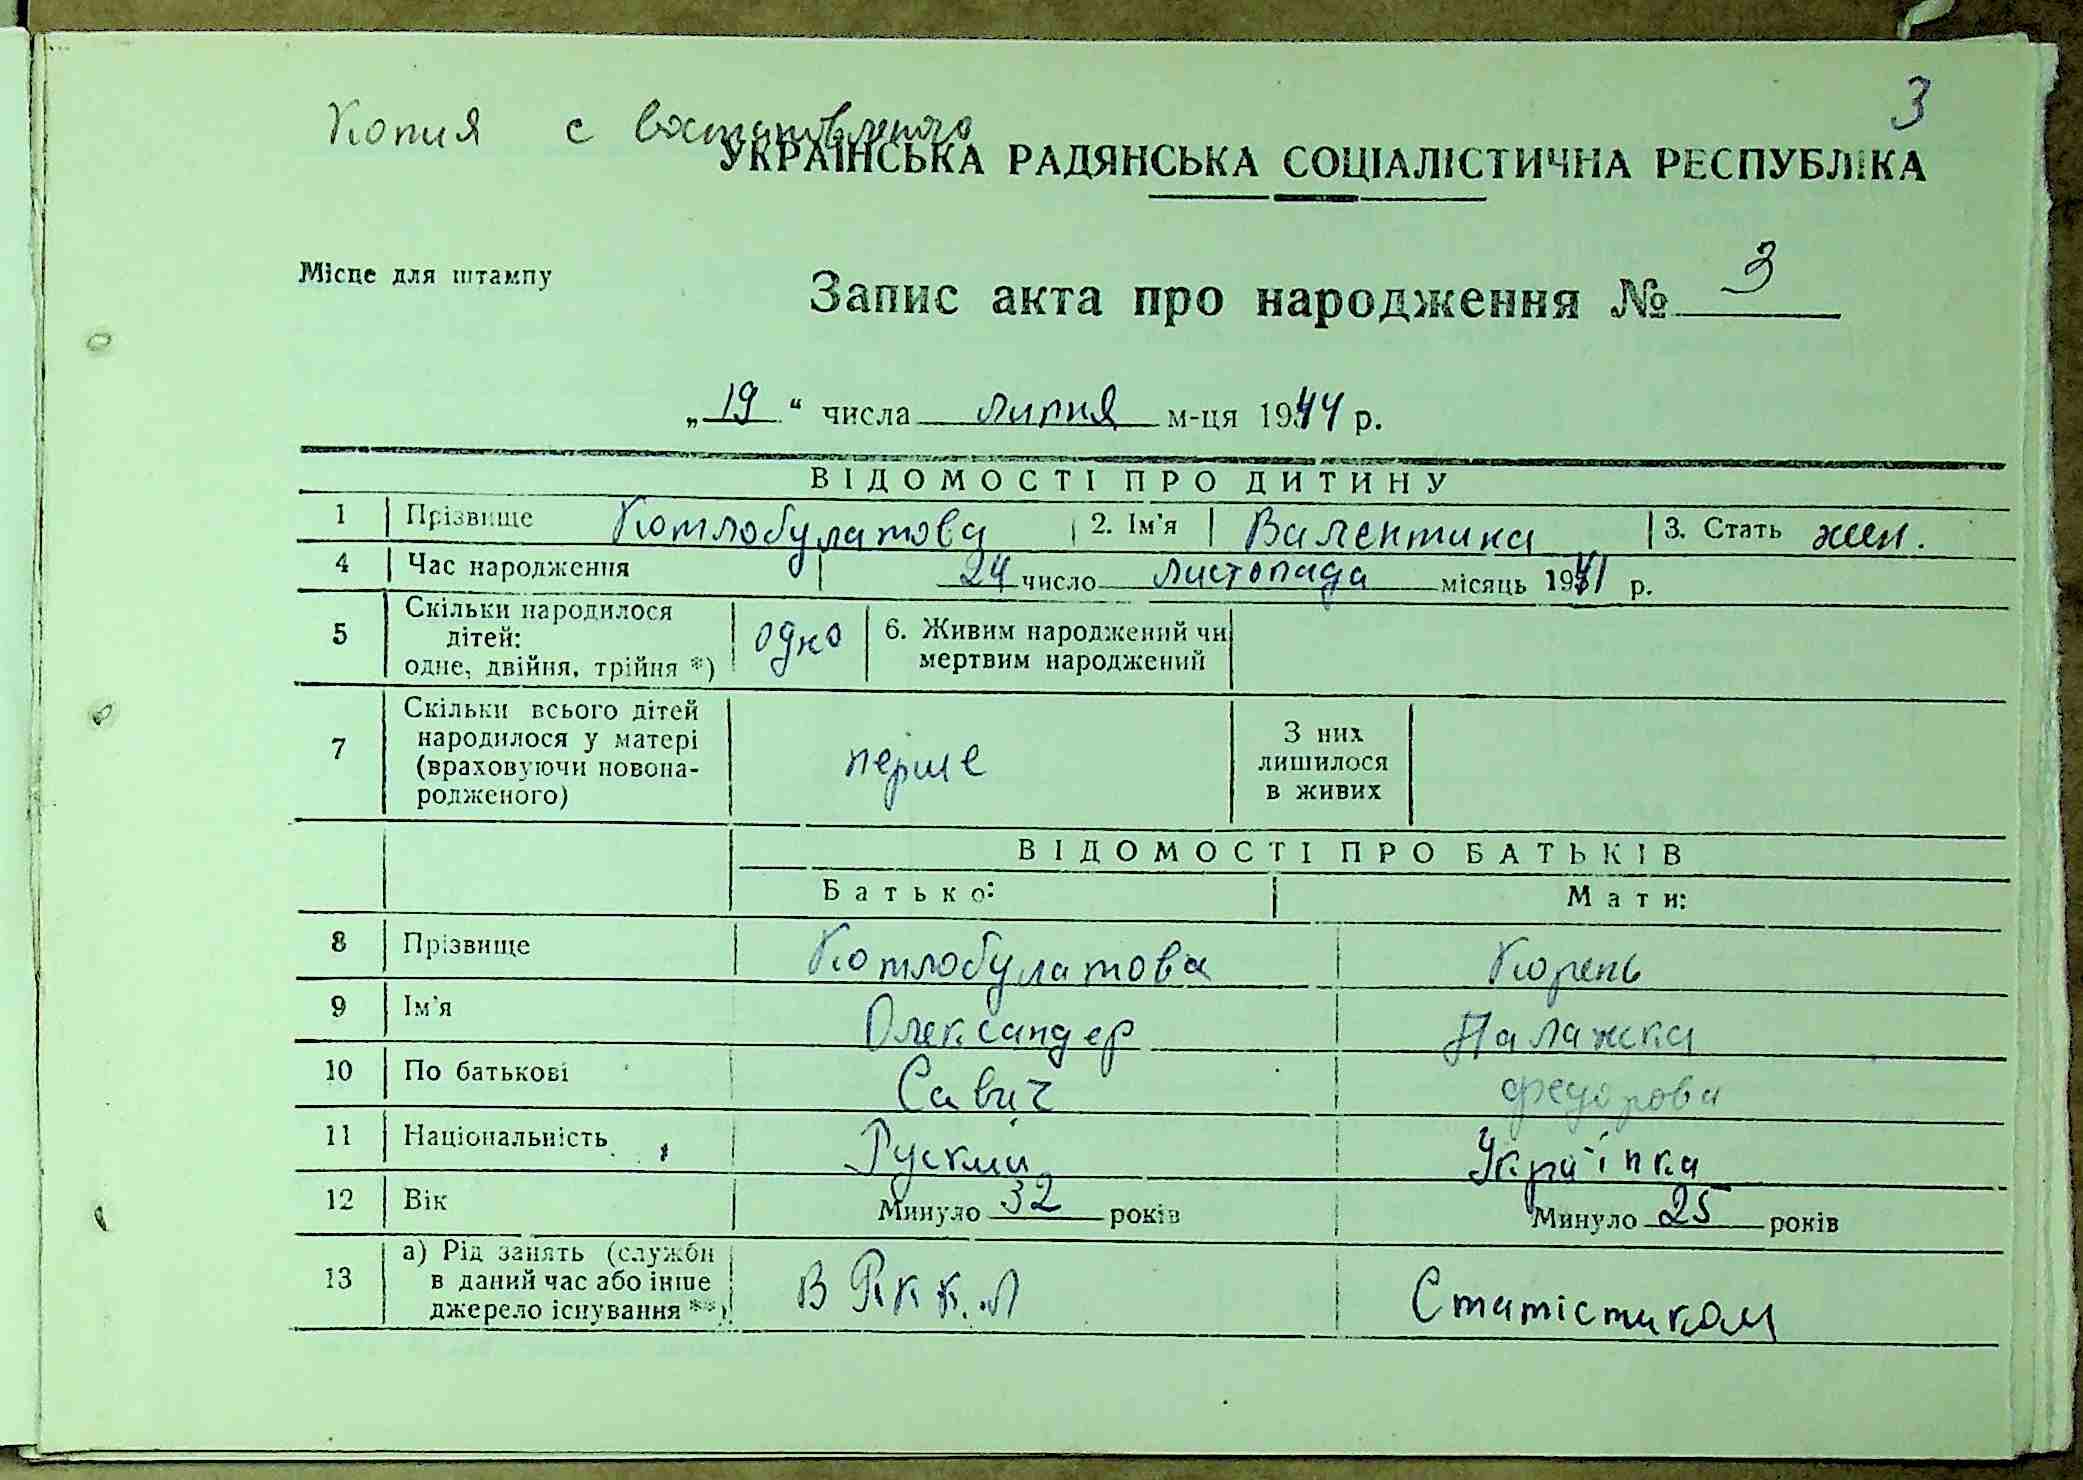 3
Копия с востановленого
УКРАЇНСЬКА РАДЯНСЬКА СОЦІАЛІСТИЧНА РЕСПУБЛІКА
Місце для штампу
Запис акта про народження № 3
„ 19 “ числа липня м-ця 1944 р.
ВІДОМОСТІ ПРО ДИТИНУ
1 Прізвище Котлобулатова 2. Ім'я Валентина 3. Стать жен.
4 Час народження 24 число листопада місяць 1941 р.
5 Скільки народилося дітей: одне, двійня, трійня *) одно 6. Живим народжений чи мертвим народжений
7 Скільки всього дітей народилося у матері (враховуючи новонародженого) перше З них лишилося в живих
ВІДОМОСТІ ПРО БАТЬКІВ
Батько: Мати:
8 Прізвище Котлобулатова Корень
9 Ім'я Олександер Палажка
10 По батькові Савич Федорова
11 Національність Руский Українка
12 Вік Минуло 32 років Минуло 25 років
13 а) Рід занять (служби в даний час або інше джерело існування **) В Рккл Статістиком